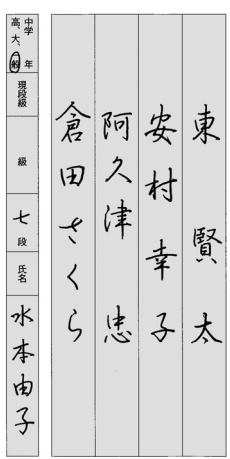 東 賢太
安村幸子
阿久津 忠
倉田さくら
中学 年
高、大、般
現段級
級
七段
氏名
水本由子